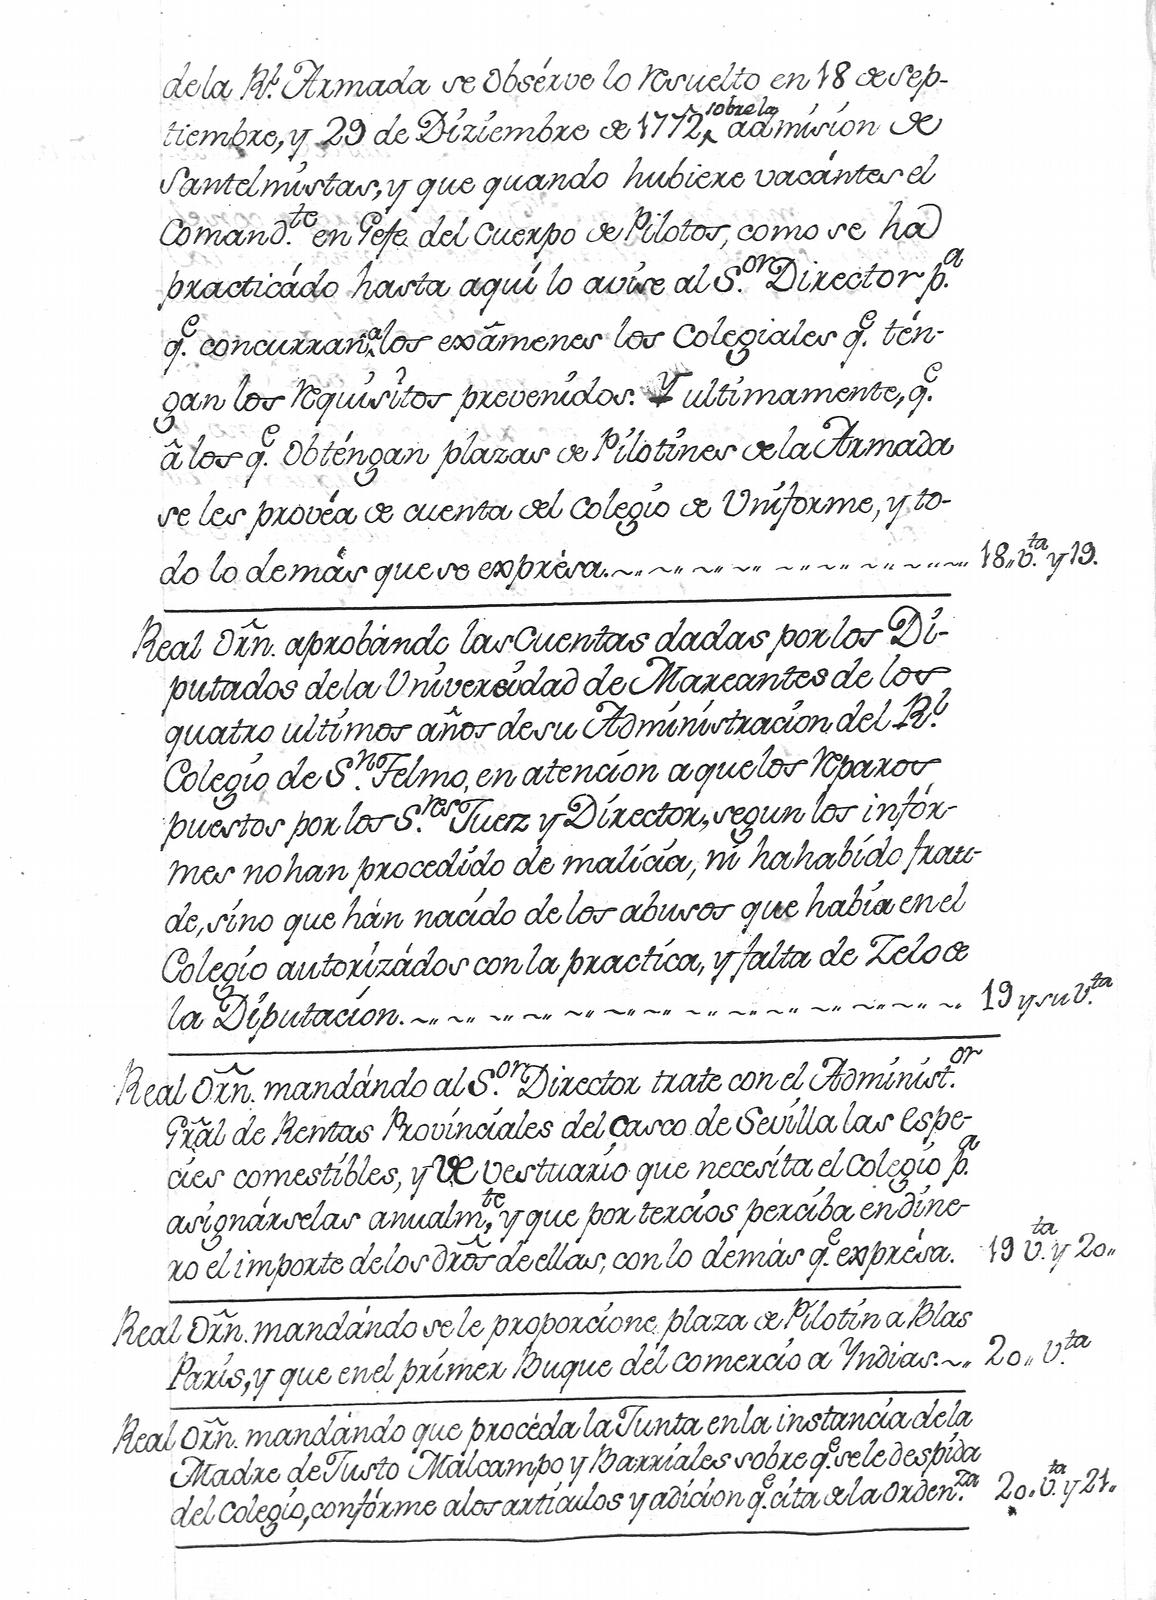 dela Rl. Armada se obsérve lo resuelto en 18 de Sep-
tiembre, y 29 de Diziembre de 1772 sobre la admísíon de
Santelmistas, y que quando hubiere vacántes el
Comand.te en Gefe del Cuerpo de Pilotos, como se ha
practicádo hasta aquí lo avise al S.or Director p.a
q.e concurran a los exâmenes los Colegiales q.e tén-
gan los requisítos prevenídos. Y ultímamente, q.e
â los q.e Obténgan plazas de Pilotínes de la Armada
se les provéa de cuenta del Colegío de Uníforme, y to-
do lo demás que se exprésa. 18,, v.ta y 19.
Real Orñ. aprobándo las Cuentas dadas por los Di-
putados dela Universidad de Mareantes de los
quatro ultímos años de su Admínístracíon del Rl.
Colegío de S.n Telmo, en atencíon a que los reparos
puestos por los S.res Juez y Dírector, segun los infór-
mes no han procedído de malícía, ni ha habído frau-
de, síno que hán nacído de los abusos que había en el
Colegío autorízádos con la practíca, y falta de Zelo de
la Díputacíon. 19 y su v.ta
Real Orñ. mandándo al S.or Dírector trate con el Admínist.or
Grãl de Rentas Provínciales del Casco de Sevílla las espe-
cíes comestíbles, y de vestuarío que necesíta el Colegío p.a
asignárselas anualm.te, y que por tercíos percíba en díne-
ro el importe de los drõs de ellas, con lo demás q.e exprésa. 19 v.ta y 20,,
Real Orñ. mandándo se le proporcíone plaza de Pilotín a Blas
París, y que en el prímer Buque del comercío a Yndías. 20,, v.ta
Real Orñ. mandándo que procéda la Junta en la instancía de la
Madre de Justo Malcampo y Barríales sobre q.e se le despída
del Colegío, confórme a los artículos y adícíon q.e cíta de la Orden.za 20,, v.ta y 21,,